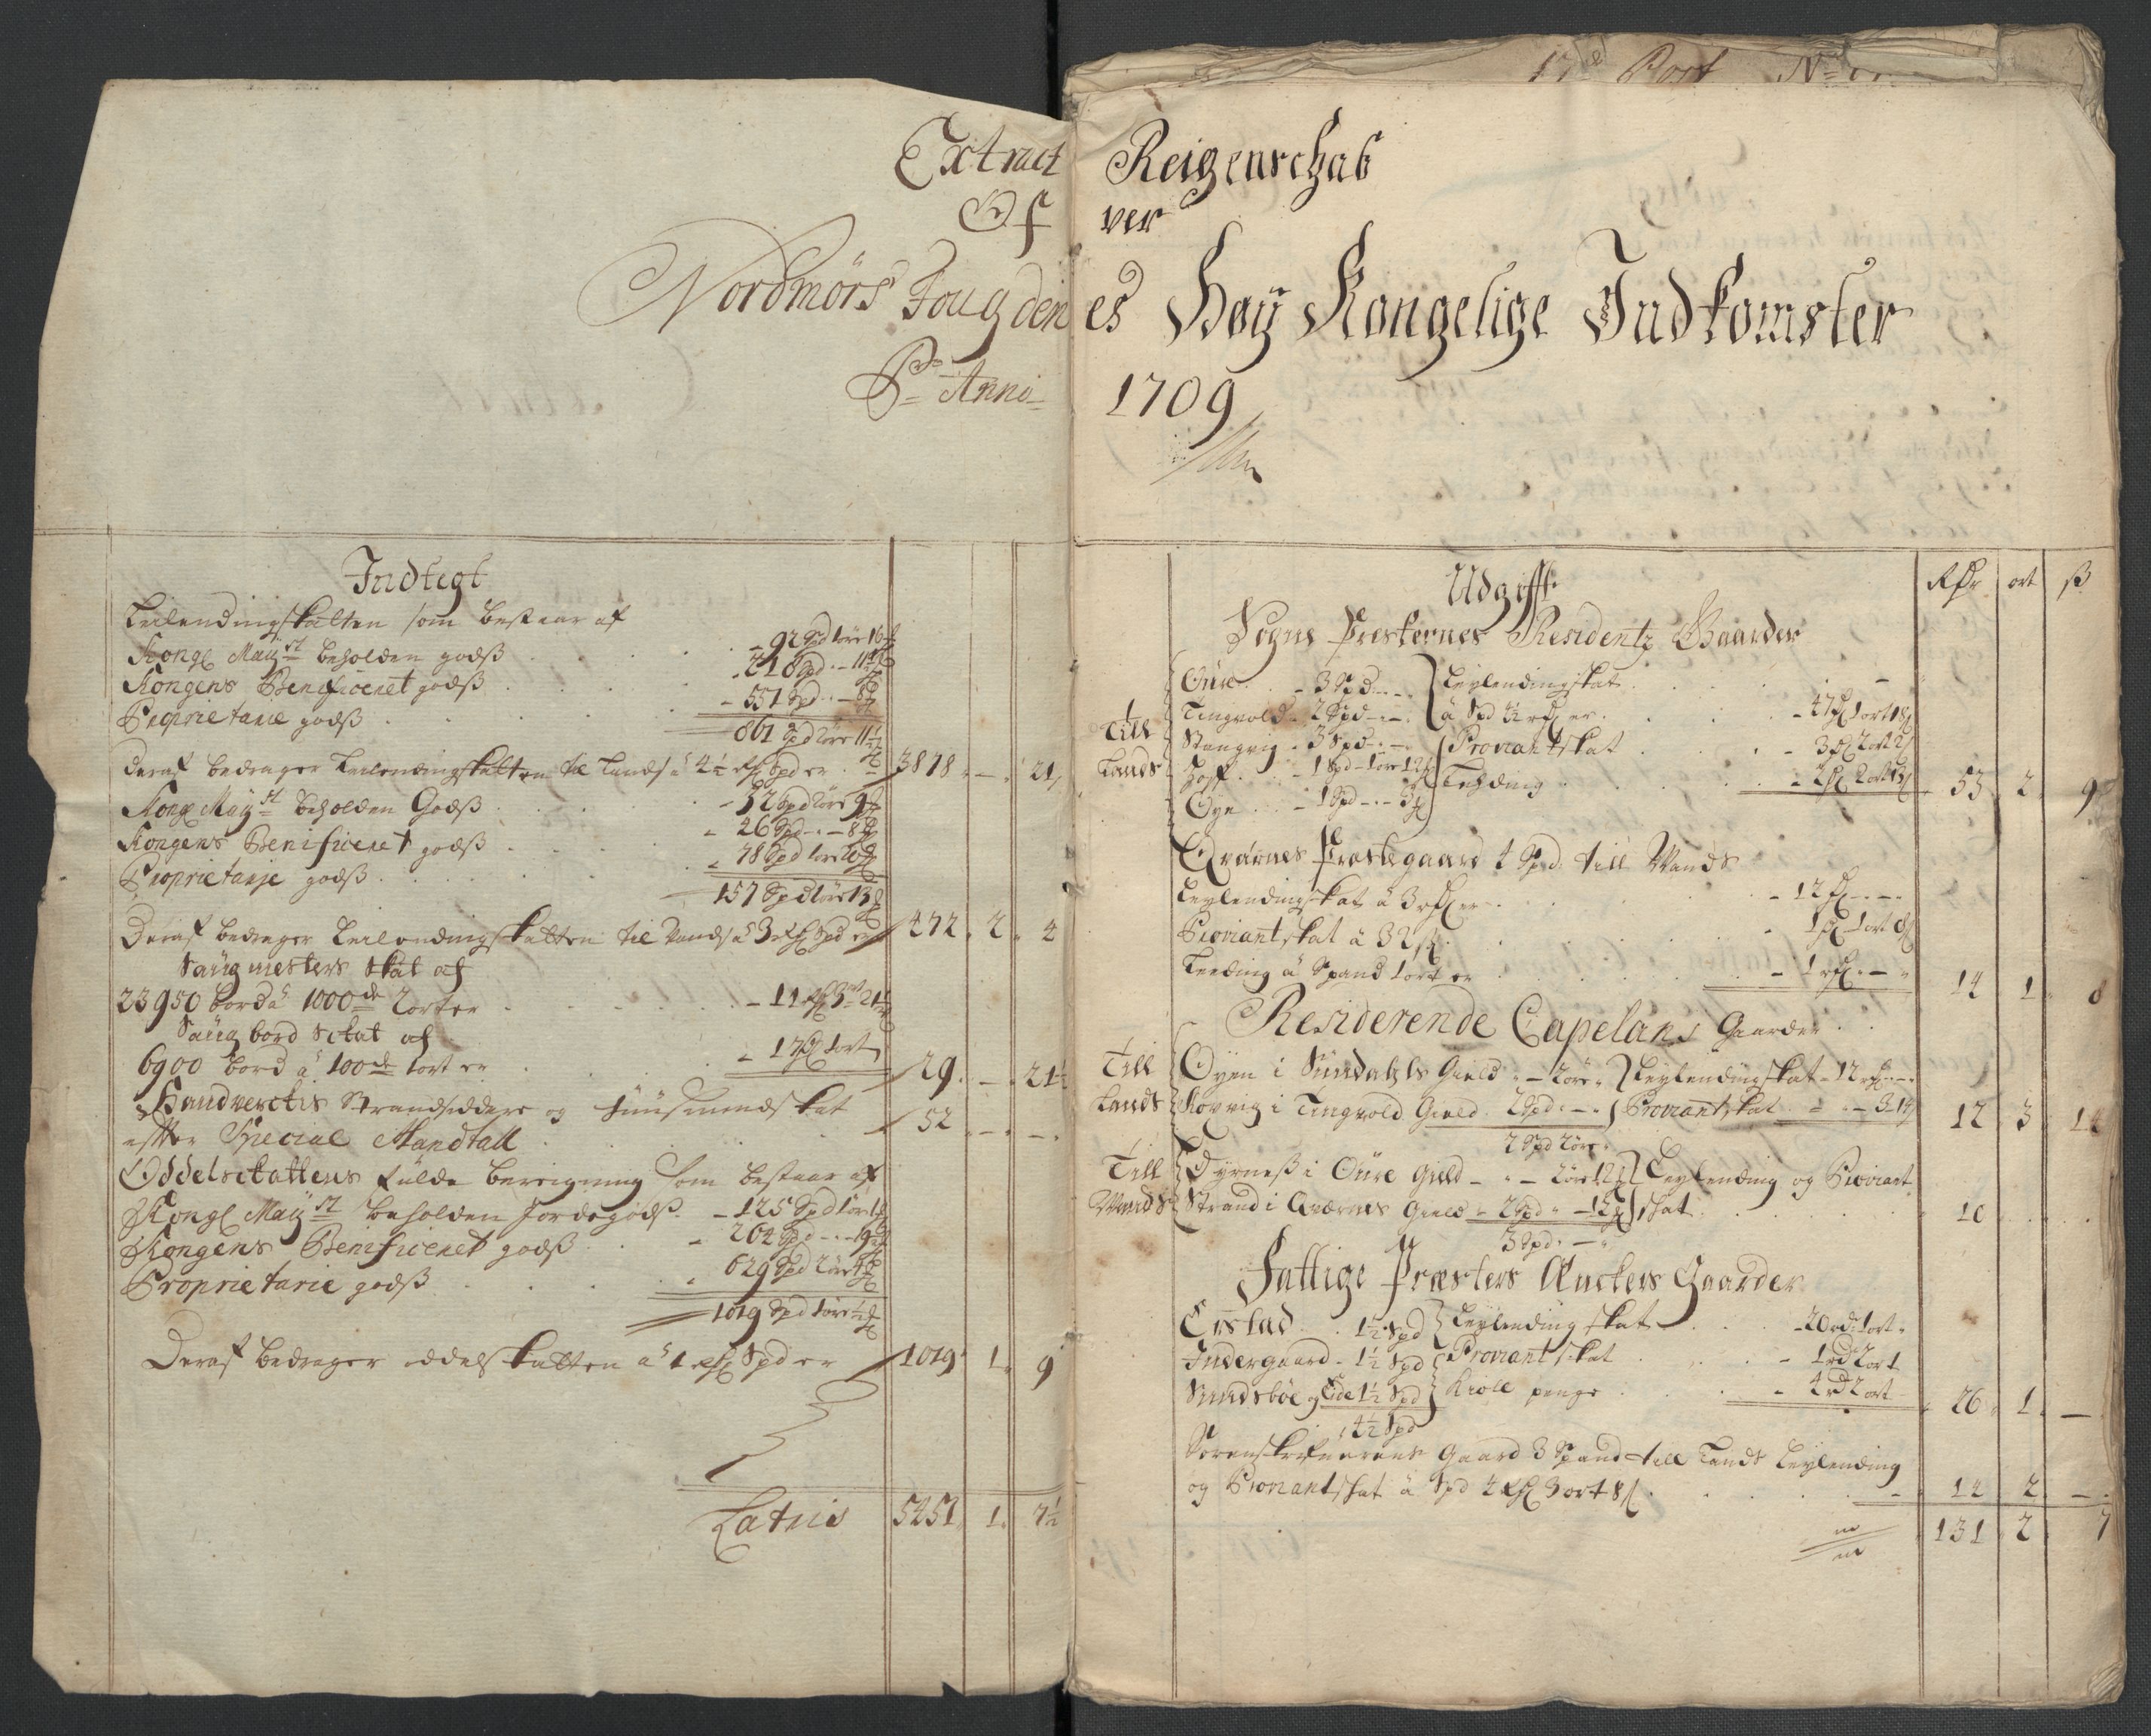 17de Post No
Extract Reigenschab
Ofver
Nordmørs Fougderies Høy Kongelige Indkomster
Pro Anno 1709
Indtegt
Leilendingskatten som bestaar af
Kongl Mayst beholden godß - 92 Spd 1øre 16
Kongens Benificeret godß 218 Spd - 11
Proprietarie godß - 551 Spd - 8
861 Spd 1øre 11½
Deraf bedrager Leilendingskatten til Lands á 4½ Spd er 3878 - 21
Kongl Mayst beholden Godß - 32 Spd 2øre 9
Kongens Benificeret godß - 46 Spd - 8
Proprietarje godß 78 Spd 1øre 20
157 Spd 1øre 13
Deraf bedrager Leilendingskatten til Vands á 3 Spd er 472 2 4
Saugmesters Skat af
23950 bord á 1000de 2ort er - 11 3ort 21½
Saug bord Skat af
6900 bord á 100de 1ort er - 17 1ort 29 - 21½
Handverckis Strandsiddere og Huusmends kat
efter Special Mandtall 52 - -
Oddelsckattens fulde beregning Som bestaar af
Kongl Mayst beholden Jordegodß - 125 Spd 1øre
Kongens Benificeret godß - 264 Spd - 19
Proprietarie godß 629 Spd 2øre
1019 Spd 1øre
Deraf bedrager oddelskatten á 1 Spd er 1019 1 9
Latris 5451 1 7½
Udgifft Rdr ort ß
Sogne Presternes Residentz Gaarder
Till Lands
Øure - 3 Spd Leylendingskat
Tingvold - 2 Spd á Spd 4½ er - 47 1ort 18
Stangvig - 3 Spd Proviantskat - 3 2ort 2
Hoff - 1 Spd 1øre 12 Leding - 2 2ort 13 53 2 9
Øye - 1 Spd - 3
Qværnes Prestegaard 4 Spd till Vands
Leylendingskat á 3 er - 12
Proviantskat á 32 ß - 1 1ort 8
Leeding á Spand 1ort er - 1 14 1 8
Residerende Capelans Gaarder
Till Lands
Øyen i Sundahls Gield - 2øre Leylendingskat - 12
Kovvig i Tingvold Gield 2 Spd Proviantskat - 3 14 12 3 14
2 Spd 2øre
Till Vands
Dyrneß i Øure Gield - 2øre 12 Leylending og Proviant
Strand i Qværnes Gield 2 Spd - 12 skat 10
3 Spd
Fattige Præsters Enckers Gaarder
Eystad 1½ Spd Leylending skat - 20 rd 1ort
Indergaard - 1½ Spd Proviantskat - 1 rd 2ort
Sundsbøe og Eide 1½ Spd Kioll penge - 4 rd 2ort 26 1 -
4½ Spd
Sorenskrifverens Gaard 3 Spand till Lands Leylending
og Proviantskat á Spd 4 3ort 8 14 2 -
131 2 7